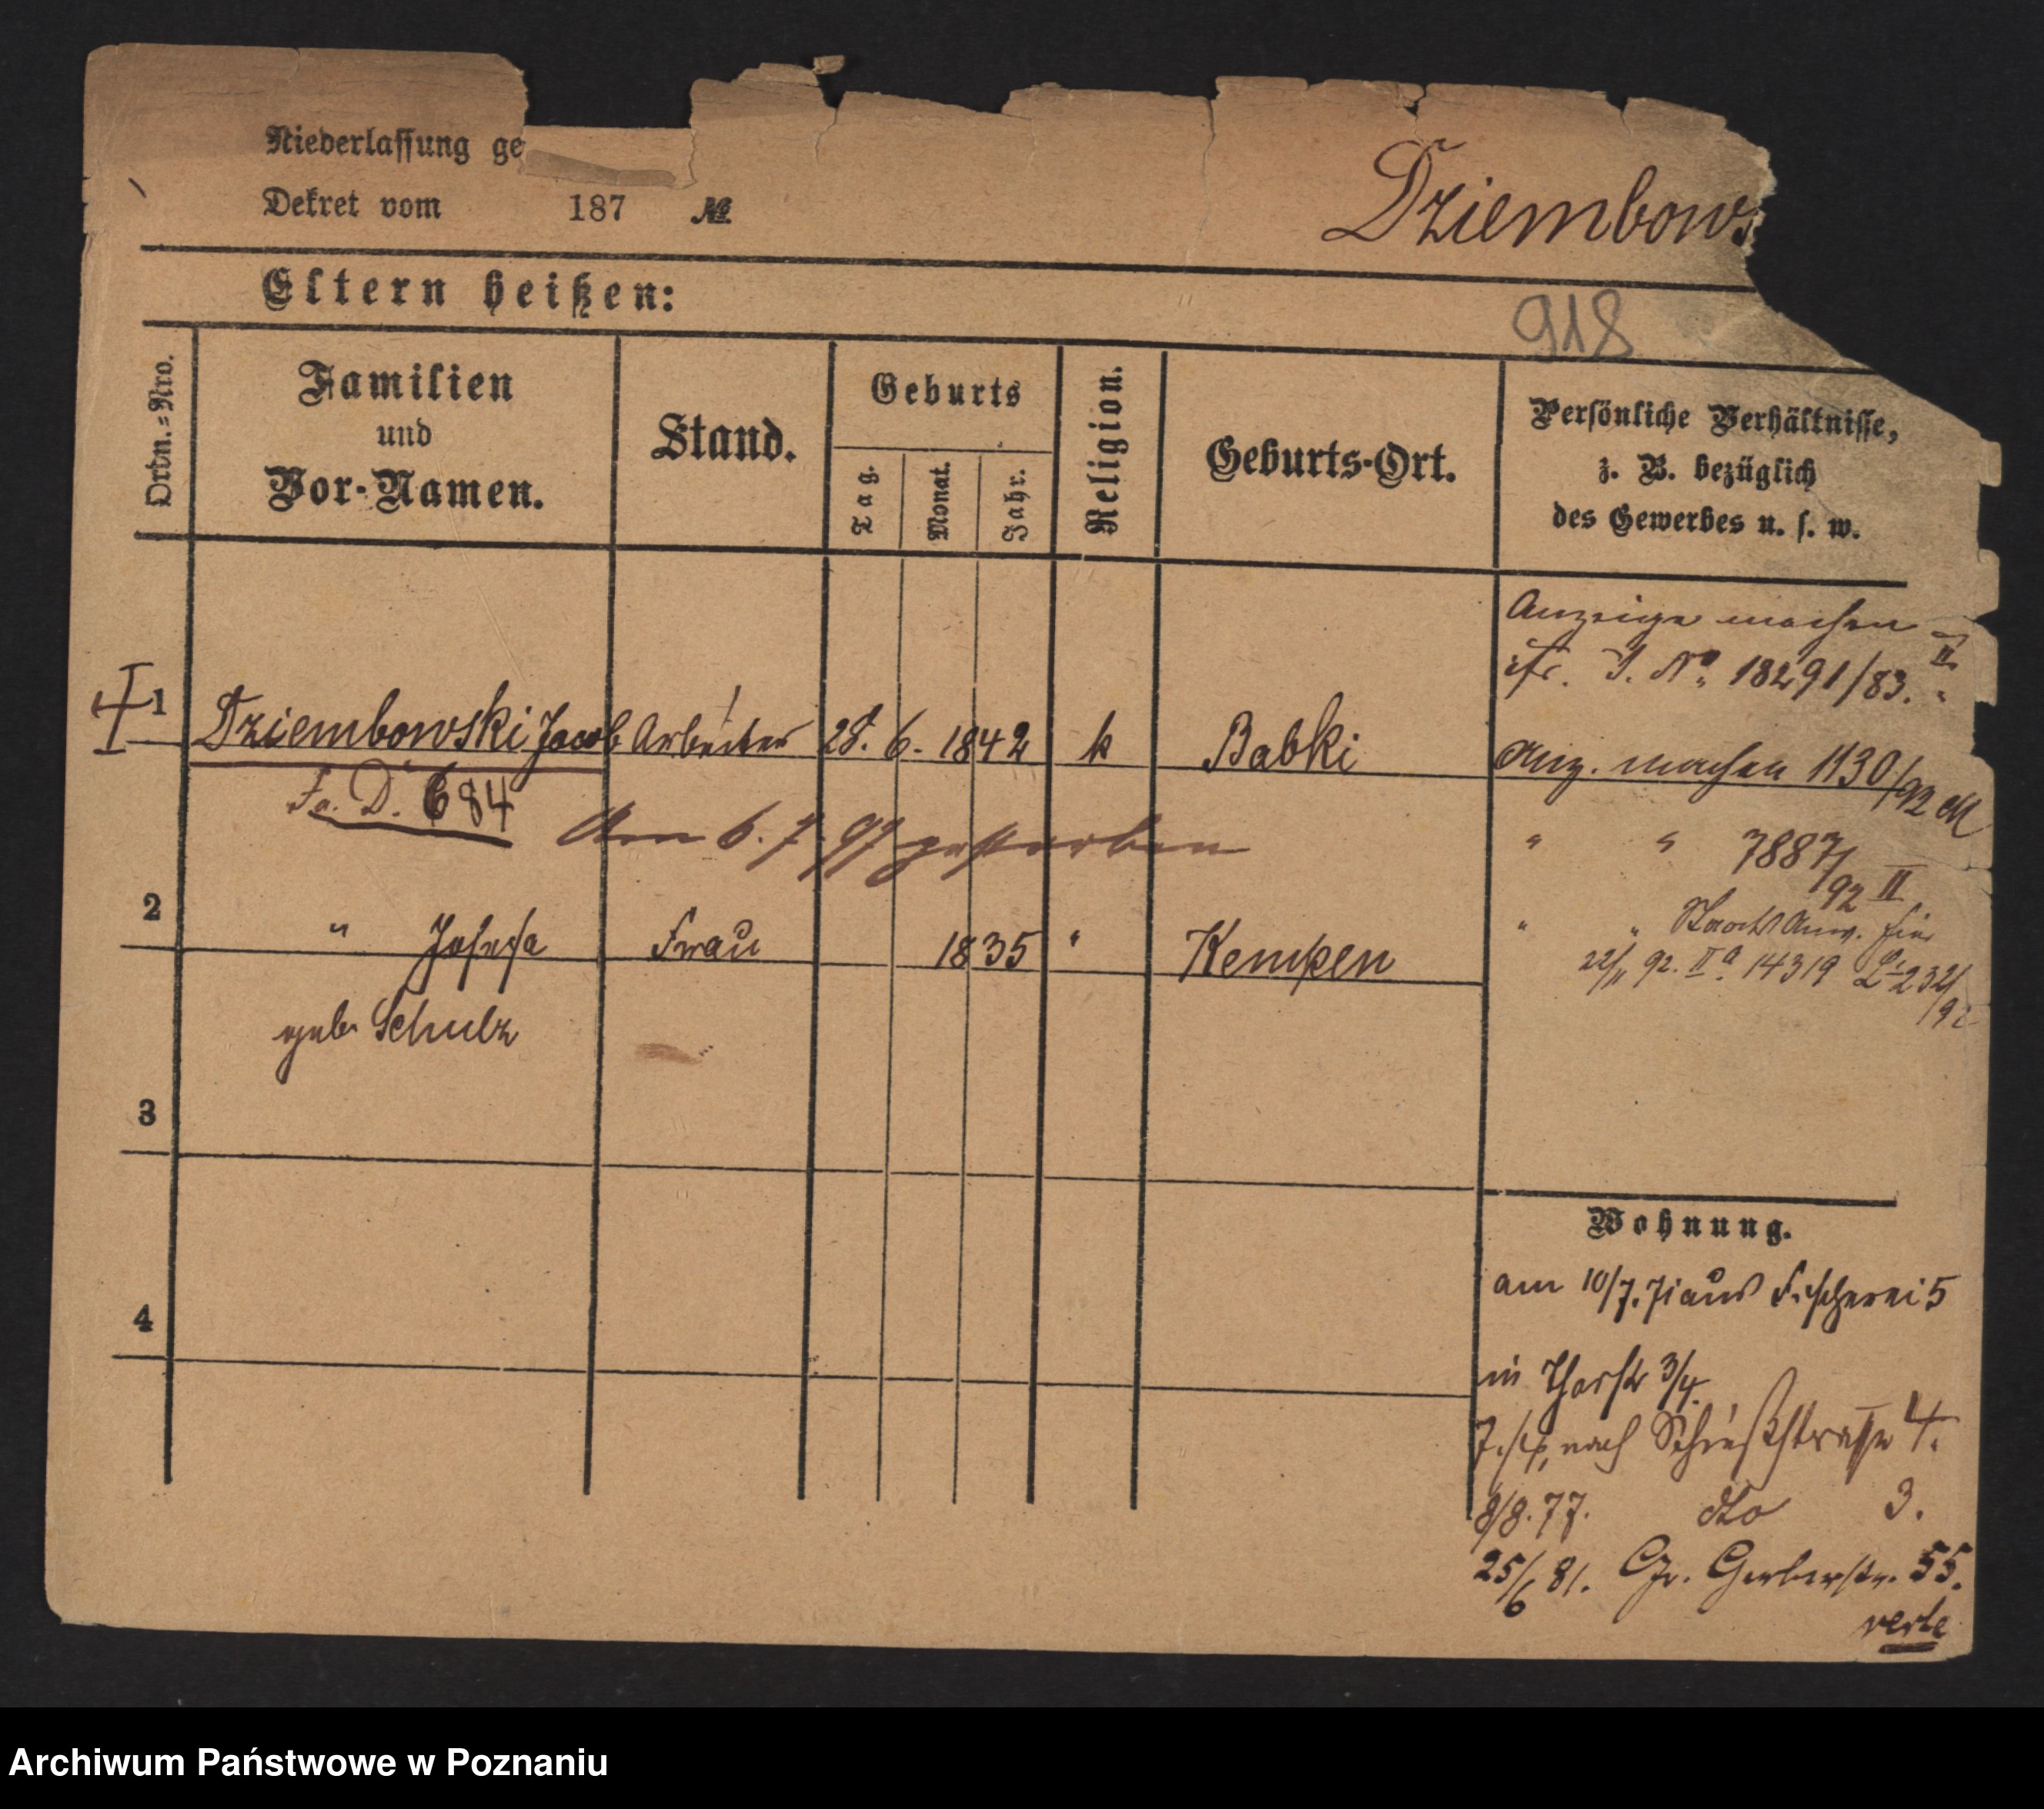 Niederlassung ge
Dekret vom 187 №
Dziembows
Eltern heißen:
918
Ordn.=Nro.
Familien
und
Vor-Namen.
Stand.
Geburts
Tag.
Monat.
Jahr.
Religion.
Geburts-Ort.
Persönliche Verhältnisse,
z. B. bezüglich
des Gewerbes u. s. w.
Anzeige machen
cfr. J. No. 18291/83. II
1 Dziembowski Jacob Arbeiter 28. 6. 1842 k Babki
Anz. machen 1130/92
Fr. D. 684
Am 6. 7. 97 gestorben
" " 7887/92 II
2 " Josefa Frau 1835 " Kempen
" " Staats Anw. hier
22/11 92. IIa. 14319 232/92
geb. Schulz
3
4
Wohnung.
am 10/7. 71 aus Fischerei 5
in Thorstr 3/4.
nach Schießstrasse 4.
8/8. 77. dto 3.
25/6 81. Gr. Gerberstr. 55.
verte
Archiwum Państwowe w Poznaniu